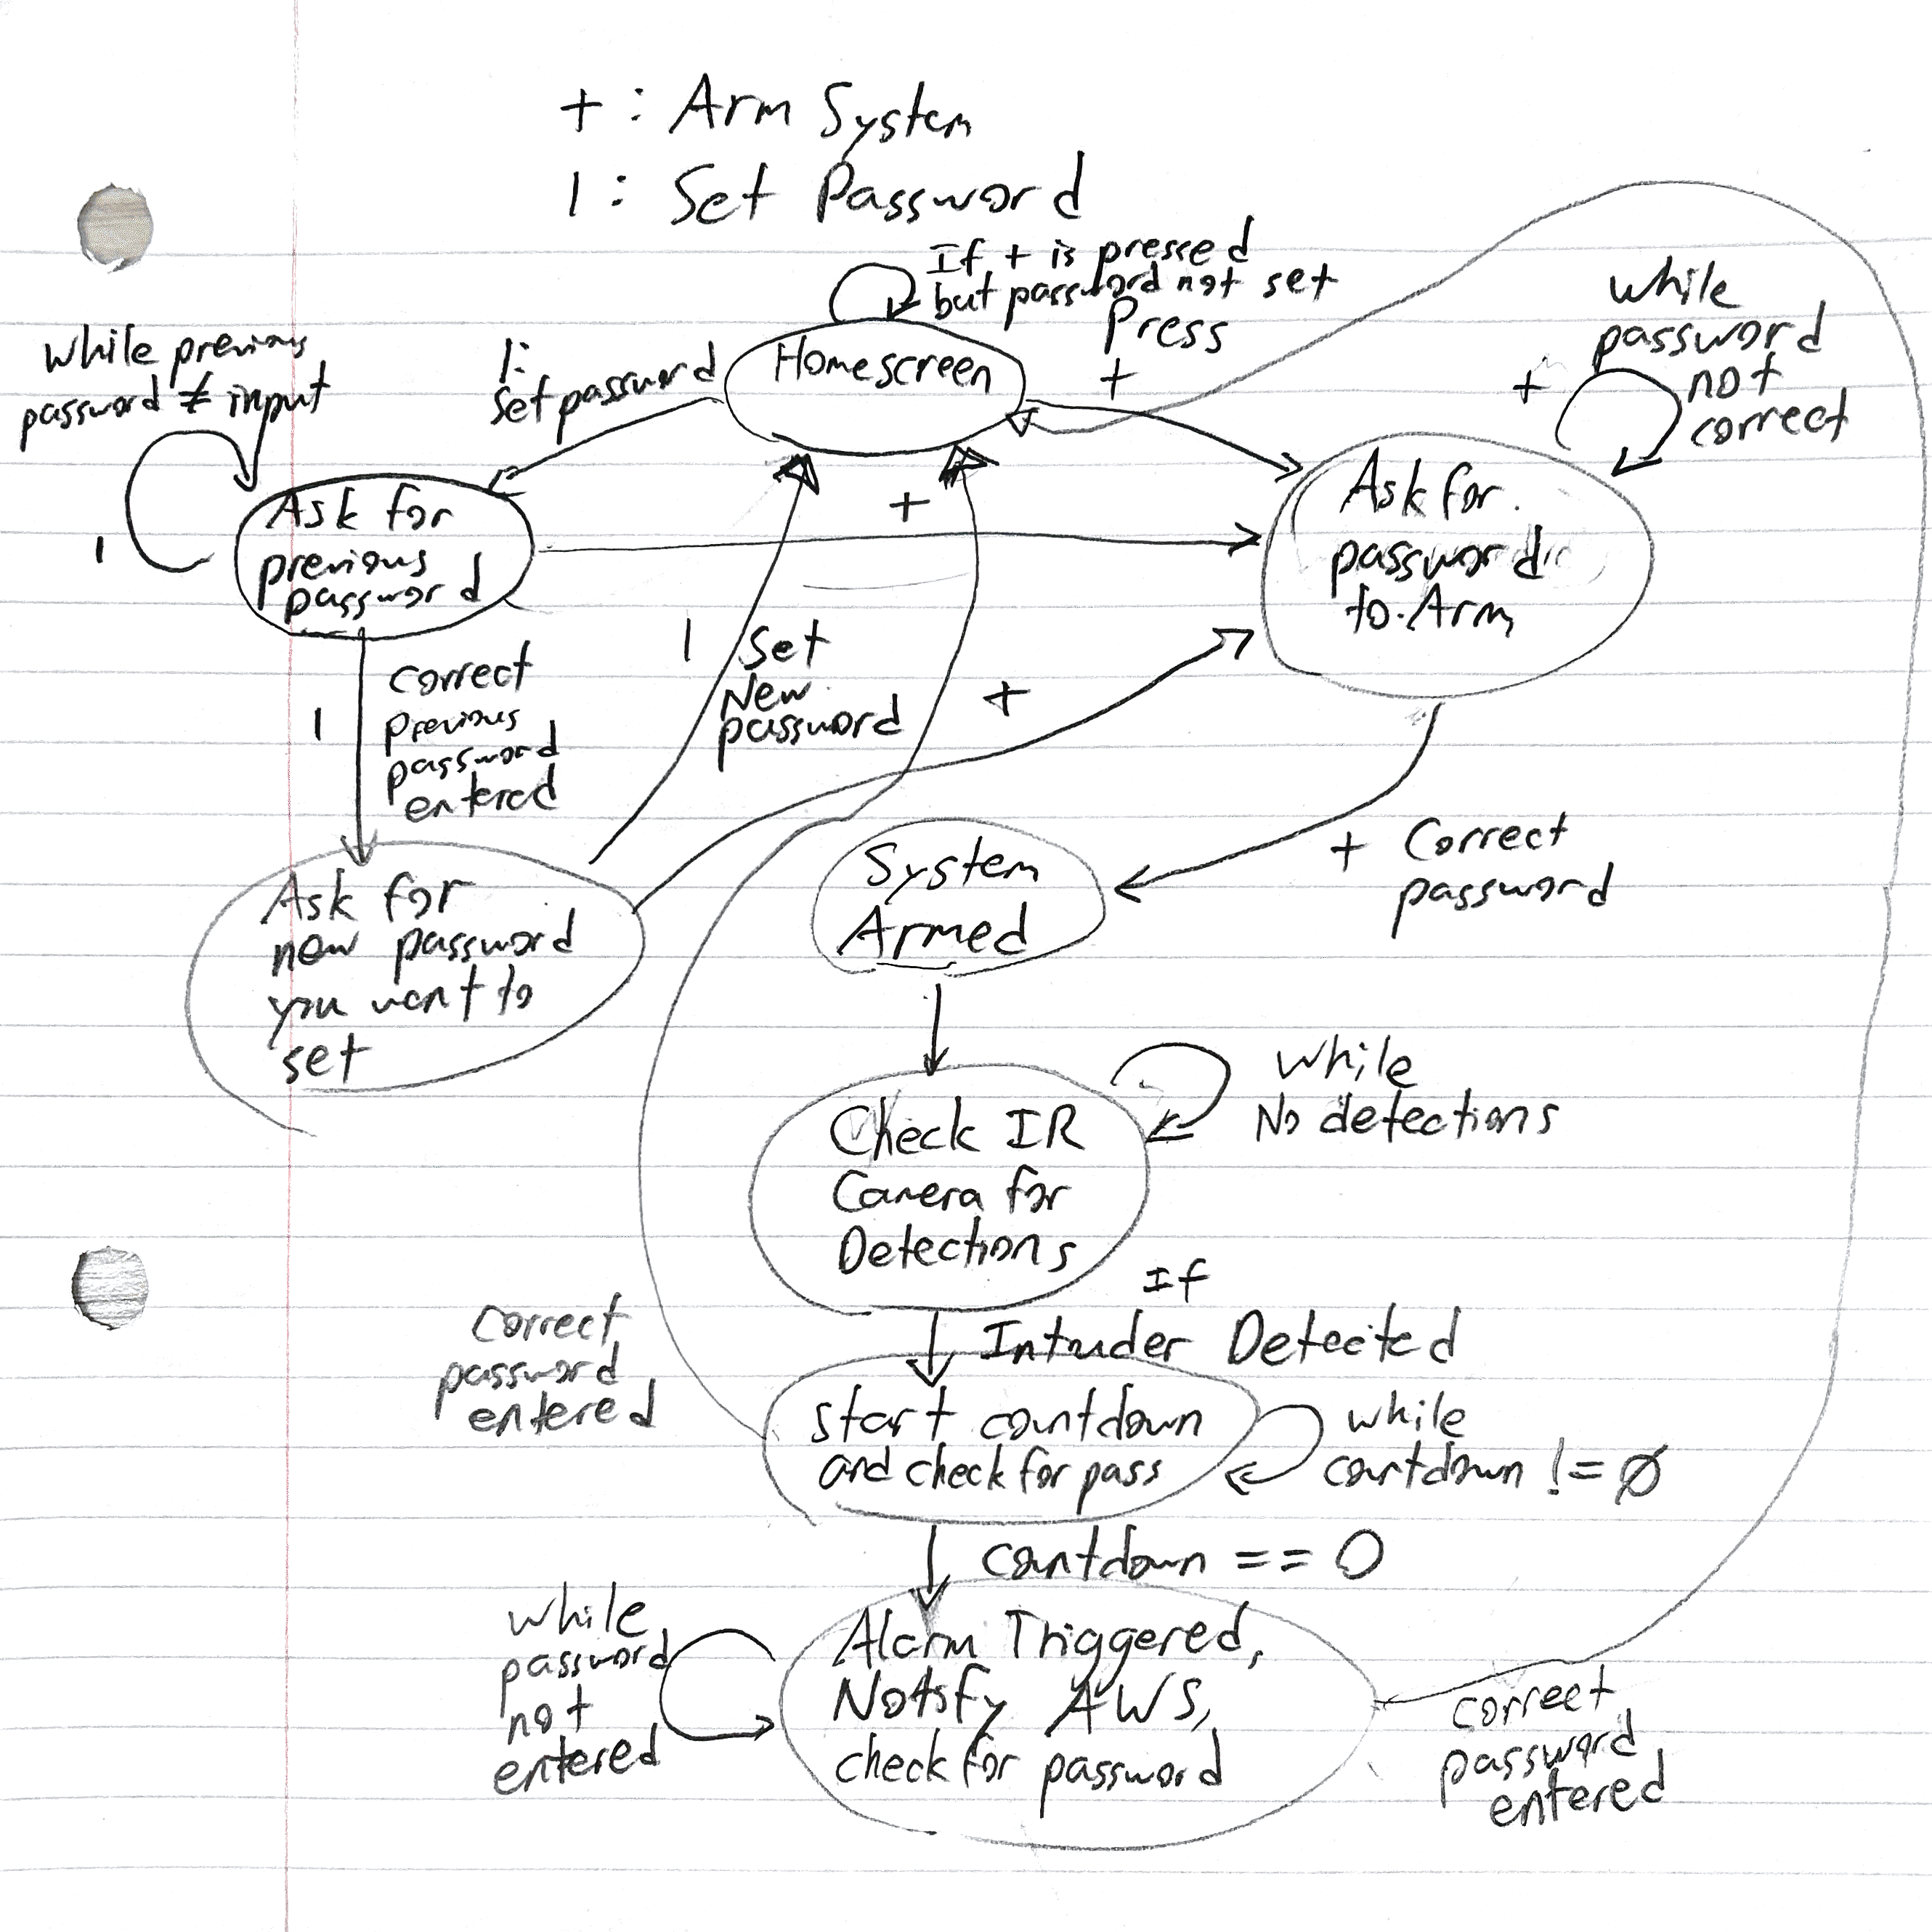 + : Arm System
1 : Set Password
If + is pressed
but password not set
Press
+
Homescreen
1:
set password
while previous
password ≠ input
1
Ask for
previous
password
+
while
password
not
correct
+
Ask for
password
to Arm
1
correct
previous
password
entered
1
Set
New
password
+
+ Correct
password
Ask for
new password
you want to
set
System
Armed
Check IR
Camera for
Detections
while
No detections
If
Intruder Detected
correct
password
entered
start countdown
and check for pass
while
countdown != Ø
countdown == 0
while
password
not
entered
Alarm Triggered,
Notify AWS,
check for password
correct
password
entered